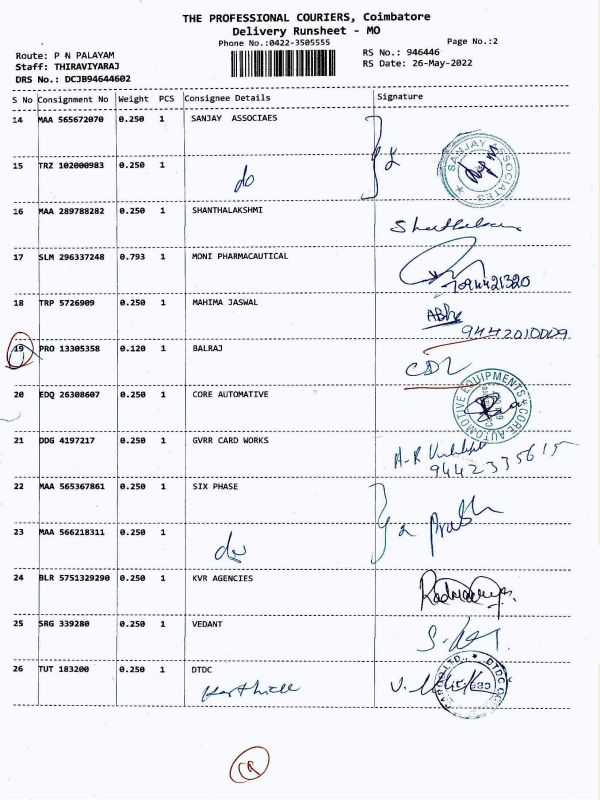 THE PROFESSIONAL COURIERS, Coimbatore
Delivery Runsheet - MO
Phone No.:0422-3505555
Page No.:2
Route: P N PALAYAM
RS No.: 946446
Staff: THIRAVIYARAJ
RS Date: 26-May-2022
DRS No.: DCJB94644602
S No Consignment No Weight PCS Consignee Details Signature
14 MAA 565672070 0.250 1 SANJAY ASSOCIAES
SANJAY ASSOCIATES
15 TRZ 102000983 0.250 1
do
16 MAA 289788282 0.250 1 SHANTHALAKSHMI
17 SLM 296337248 0.793 1 MONI PHARMACAUTICAL
7094421320
18 TRP 5726909 0.250 1 MAHIMA JASWAL
9442010009
19 PRO 13305358 0.120 1 BALRAJ
20 EDQ 26308607 0.250 1 CORE AUTOMATIVE
CORE AUTOMOTIVE EQUIPMENTS
21 DDG 4197217 0.250 1 GVRR CARD WORKS
9442335615
22 MAA 565367861 0.250 1 SIX PHASE
23 MAA 566218311 0.250 1
do
24 BLR 5751329290 0.250 1 KVR AGENCIES
25 SRG 339280 0.250 1 VEDANT
26 TUT 183200 0.250 1 DTDC